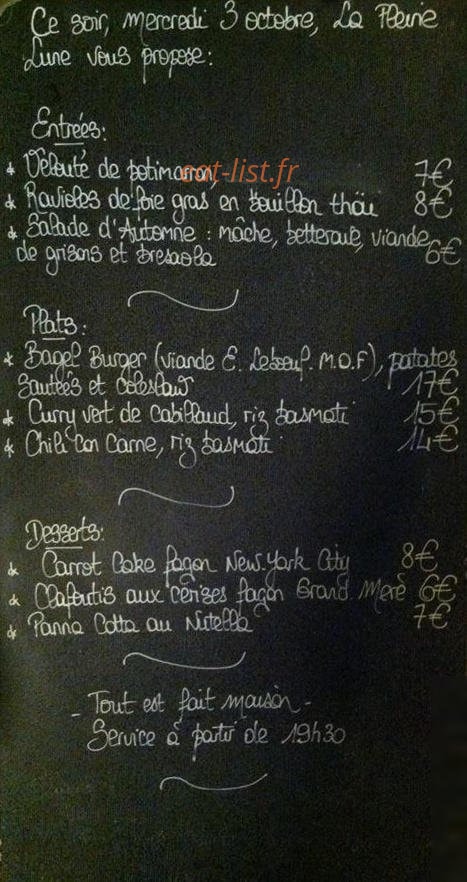 Ce soir, mercredi 3 octobre, La Pleine
Lune vous propose :
Entrées :
* Velouté de potimarron, 7€
eat-list.fr
* Ravioles de foie gras en bouillon thaï 8€
* Salade d'Automne : mâche, betterave, viande
de grisons et bresaola 6€
Plats :
* Bagel Burger (viande E. Leboeuf. M.O.F), patates
sautées et coleslaw 17€
* Curry vert de cabillaud, riz basmati 15€
* Chili Con Carne, riz basmati 14€
Desserts :
* Carrot Cake façon New-York City 8€
* Clafoutis aux cerises façon Grand Mère 6€
* Panna Cotta au Nutella 7€
- Tout est fait maison -
Service à partir de 19h30